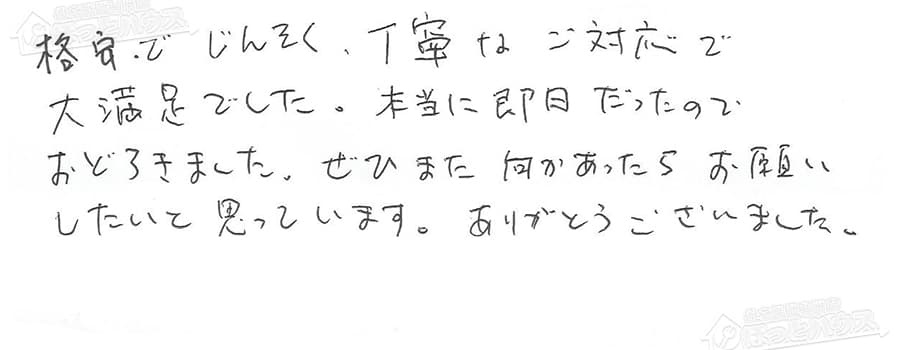 格安でじんそく、丁寧なご対応で
大満足でした。本当に即日だったので
おどろきました。ぜひまた何かあったらお願い
したいと思っています。ありがとうございました。